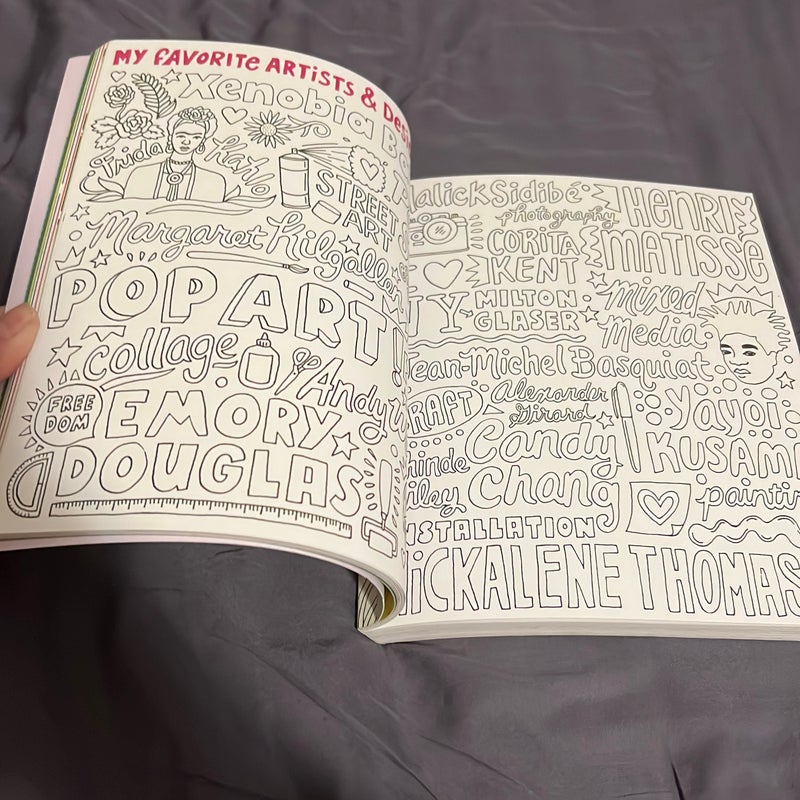 MY FAVORITE ARTISTS &
Xenobia
Frida Kahlo
STREET
ART
Margaret Kilgallen
POP ART!
Collage
Andy
FREE
DOM
EMORY
DOUGLAS
Malick Sidibé
photography
HENRI
MATISSE
CORITA
KENT
MILTON
GLASER
Mixed
Media
Jean-Michel Basquiat
CRAFT
Alexander
Girard
Yayoi
KUSAMA
Candy
Chang
INSTALLATION
MICKALENE THOMAS